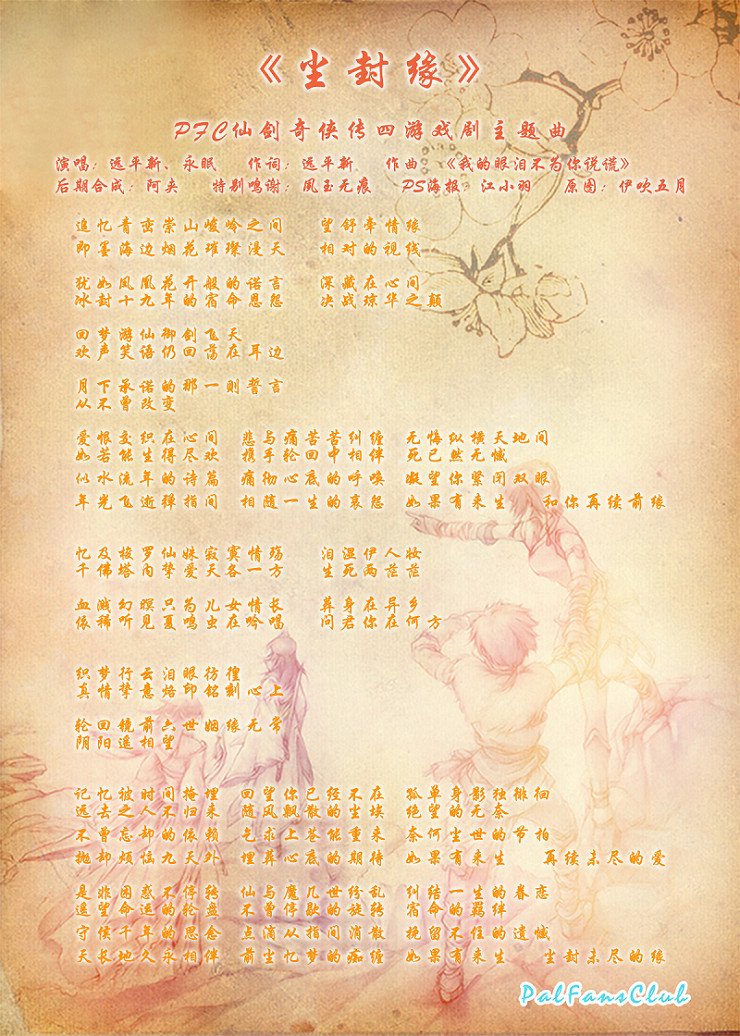 《尘封缘》
PFC仙剑奇侠传四游戏剧主题曲
演唱：远平新、永眠 作词：远平新 作曲 《我的眼泪不为你说谎》
后期合成：阿夹 特别鸣谢：凰玉无痕 PS海报：江小羽 原图：伊吹五月
追忆青峦崇山峻岭之间 望舒牵情缘
即墨海边烟花璀璨漫天 相对的视线
犹如凤凰花开般的诺言 深藏在心间
冰封十九年的宿命恩怨 决战琼华之巅
回梦游仙御剑飞天
欢声笑语仍回荡在耳边
月下承诺的那一则誓言
从不曾改变
爱恨交织在心间 悲与痛苦苦纠缠 无悔纵横天地间
如若能生得尽欢 携手轮回中相伴 死已然无憾
似水流年的诗篇 痛彻心底的呼唤 凝望你紧闭双眼
年光飞逝弹指间 相随一生的哀怨 如果有来生 和你再续前缘
忆及梭罗仙姝寂寞情殇 泪湿伊人妆
千佛塔内挚爱天各一方 生死两茫茫
血溅幻暝只为儿女情长 葬身在异乡
依稀听见夏鸣虫在吟唱 问君你在何方
织梦行云泪眼彷徨
真情挚意烙印铭刻心上
轮回镜前六世姻缘无常
阴阳遥相望
记忆被时间掩埋 回望你已经不在 孤单身影独徘徊
远去之人不归来 随风飘散的尘埃 绝望的无奈
不曾忘却的依赖 乞求上苍能重来 奈何尘世的节拍
抛却烦恼九天外 埋葬心底的期待 如果有来生 再续未尽的爱
是非困惑不停转 仙与魔几世纷乱 纠结一生的眷恋
遥望命运的轮盘 不曾停歇的旋转 宿命的羁绊
守侯千年的思念 点滴从指间消散 挽留不住的遗憾
天长地久永相伴 前尘忆梦的痴缠 如果有来生 尘封未尽的缘
PalFansClub